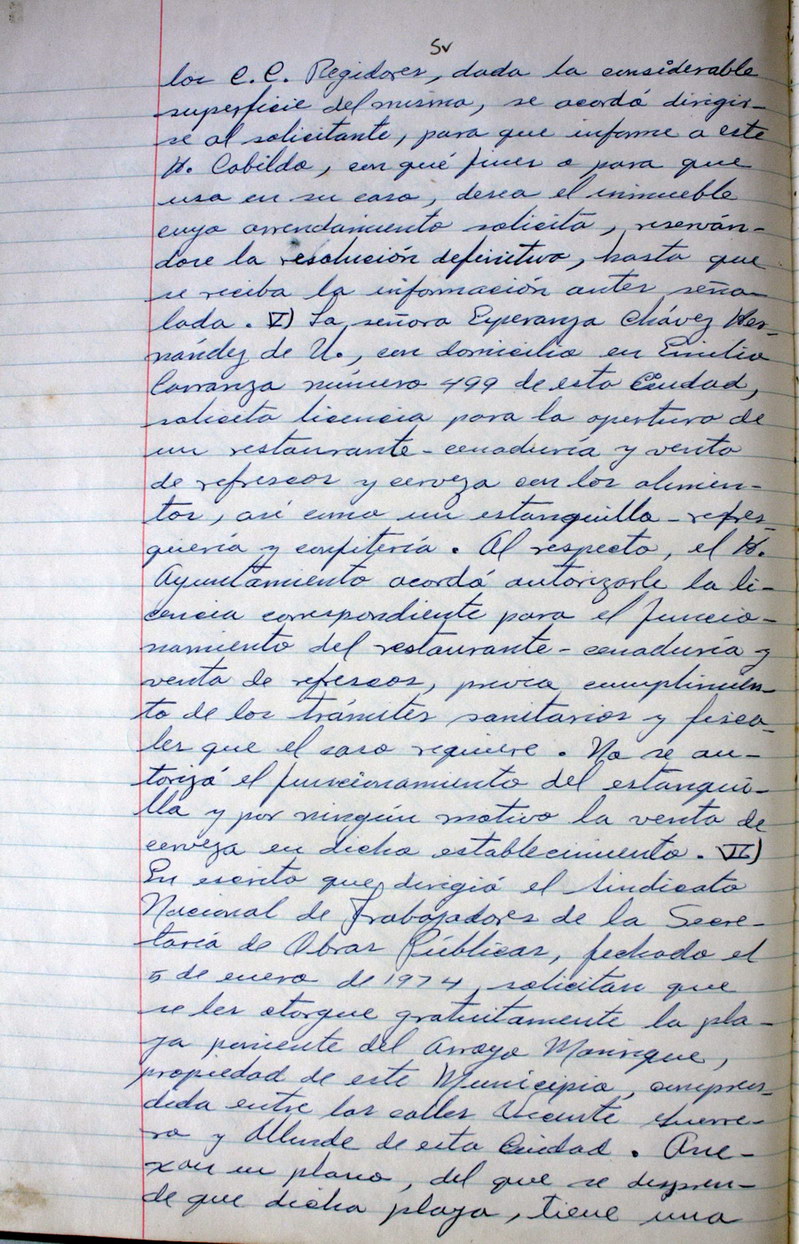 5v
los C.C. Regidores, dada la considerable
superficie del mismo, se acordó dirigir-
se al solicitante, para que informe a este
H. Cabildo, con qué fines o para que
uso en su caso, desea el inmueble
cuyo arrendamiento solicita, reserván-
dose la resolución definitiva, hasta que
se reciba la información antes seña-
lada. V) La señora Esperanza Chávez Her-
nández de U., con domicilio en Emilio
Carranza número 499 de esta Ciudad,
solicita licencia para la apertura de
un restaurante-cenaduría y venta
de refrescos y cerveza con los alimen-
tos, así como un estanquillo-refres-
quería y confitería. Al respecto, el H.
Ayuntamiento acordó autorizarle la li-
cencia correspondiente para el funcio-
namiento del restaurante-cenaduría y
venta de refrescos, previa cumplimien-
to de los trámites sanitarios y fisca-
les que el caso requiere. No se au-
torizó el funcionamiento del estanqui-
llo y por ningún motivo la venta de
cerveza en dicho establecimiento. VI)
En escrito que dirigió el Sindicato
Nacional de Trabajadores de la Secre-
taría de Obras Públicas, fechado el
5 de enero de 1974, solicitan que
se les otorgue gratuitamente la pla-
ya poniente del Arroyo Manrique,
propiedad de este Municipio, compren-
dida entre las calles Vicente Guerre-
ro y Allende de esta Ciudad. Ane-
xan un plano, del que se despren-
de que dicha playa, tiene una